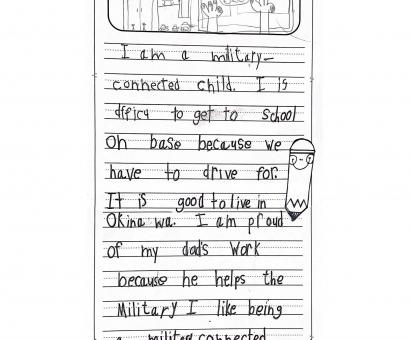 I am a military-
connected child. I is
dfficty to get to school
On base because we
have to drive for.
It is good to live in
Okina wa. I am proud
of my dad's Work
because he helps the
Military I like being
a connected